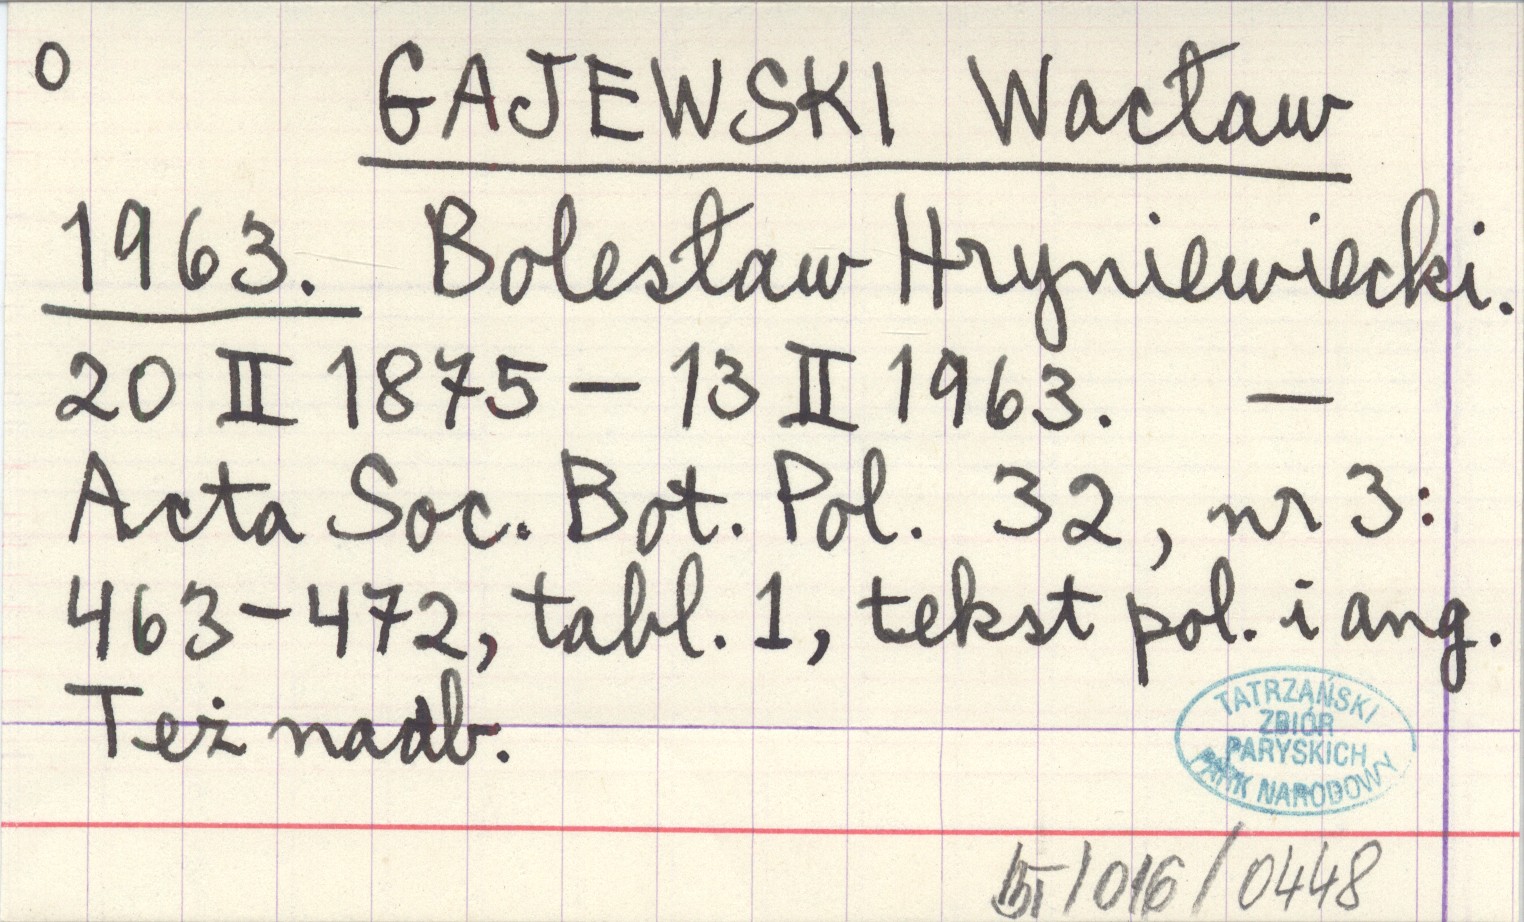 O
GAJEWSKI Wacław
1963. Bolesław Hryniewiecki.
20 II 1875 – 13 II 1963. —
Acta Soc. Bot. Pol. 32, nr 3:
463–472, tabl. 1, tekst pol. i ang.
Też nadb.
TATRZAŃSKI
ZBIÓR
PARYSKICH
PARK NARODOWY
/016/0448